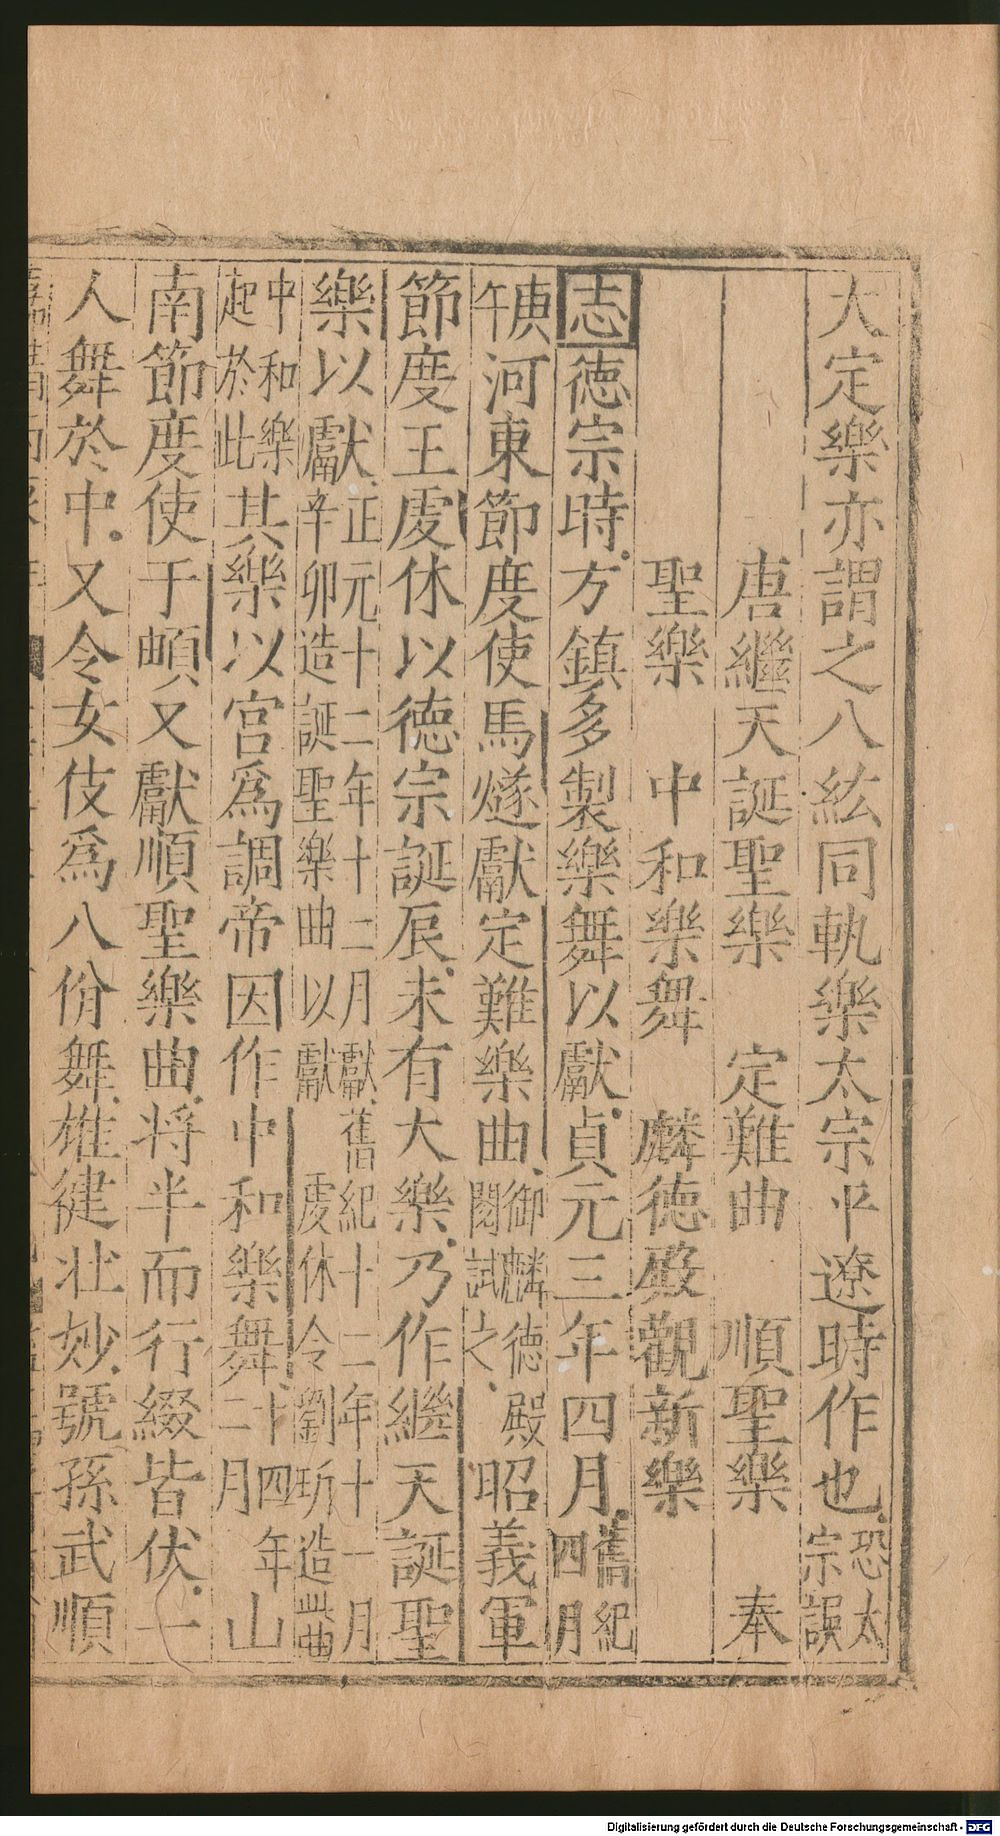 大定樂亦謂之八紘同軌樂太宗平遼時作也恐太宗誤
唐繼天誕聖樂　定難曲　順聖樂　奉
聖樂　中和樂舞　麟德殿觀新樂
志德宗時方鎮多製樂舞以獻貞元三年四月舊紀四月
庚午河東節度使馬燧獻定難樂曲御麟德殿閱試之昭義軍
節度王虔休以德宗誕辰未有大樂乃作繼天誕聖
樂以獻正元十二年十二月獻舊紀十二年十一月辛卯造誕聖樂曲以獻　虔休令劉玠造此曲
中和樂起於此其樂以宮爲調帝因作中和樂舞十四年二月山
南節度使于頔又獻順聖樂曲將半而行綴皆伏一
人舞於中又令女伎爲八佾舞雄健壯妙號孫武順
Digitalisierung gefördert durch die Deutsche Forschungsgemeinschaft - DFG